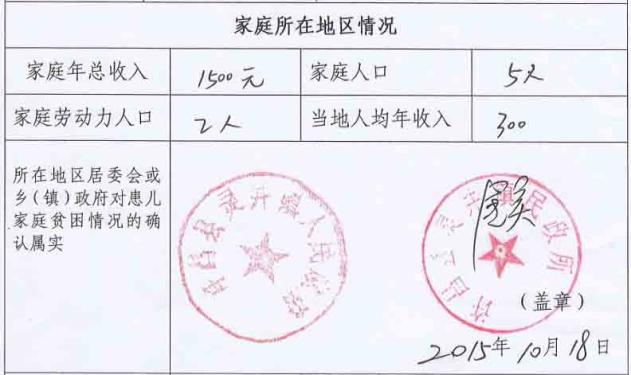 家庭所在地区情况
家庭年总收入 1500元 家庭人口 5人
家庭劳动力人口 2人 当地人均年收入 300
所在地区居委会或
乡(镇)政府对患儿
家庭贫困情况的确
认属实
许昌县灵井镇人民政府
许昌县灵井镇民政所
(盖章)
2015年10月18日